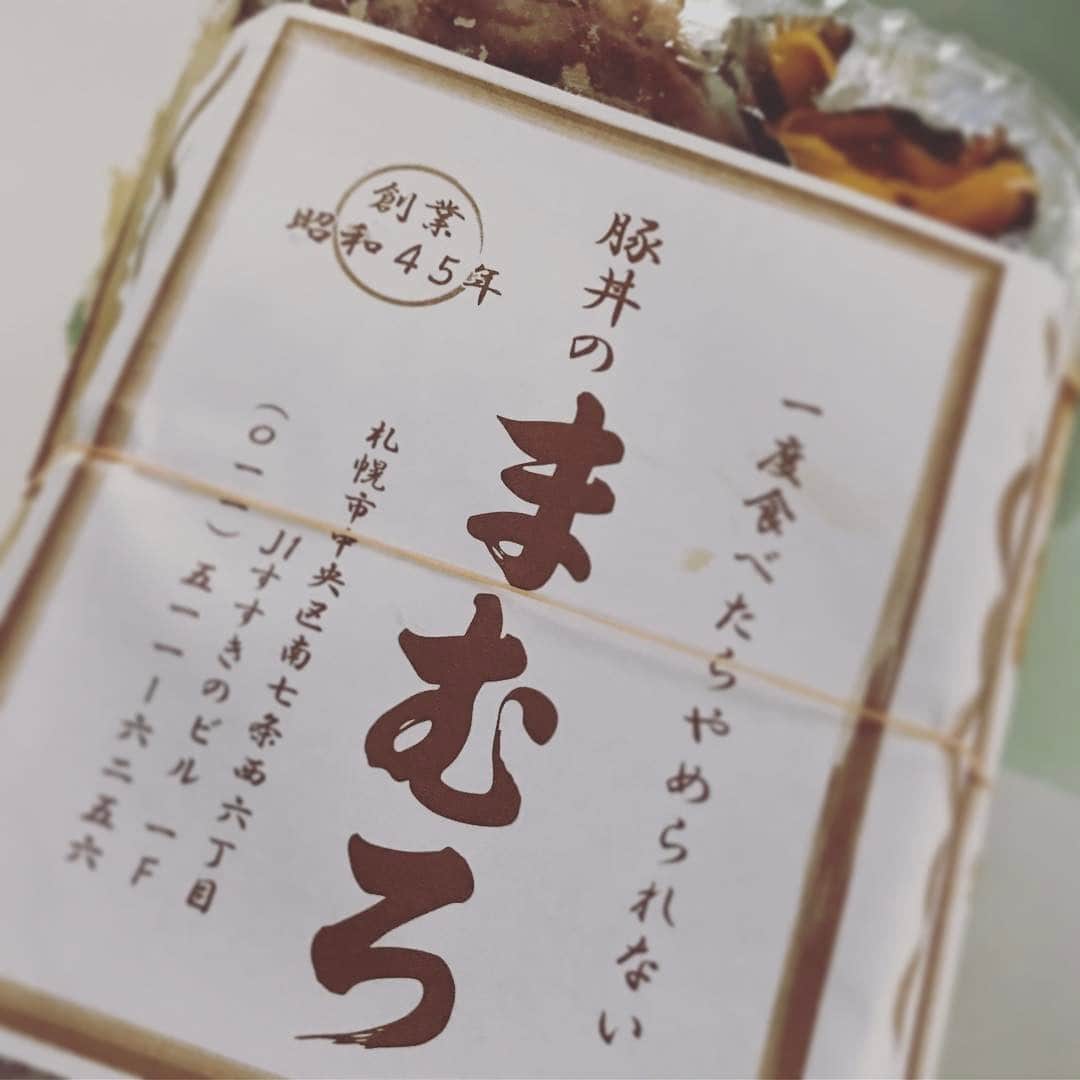 一度食べたらやめられない
豚丼の
まむろ
創業
昭和45年
札幌市中央区南七条西六丁目
J1すすきのビル 一F
(〇一一)五一一ー六二五六